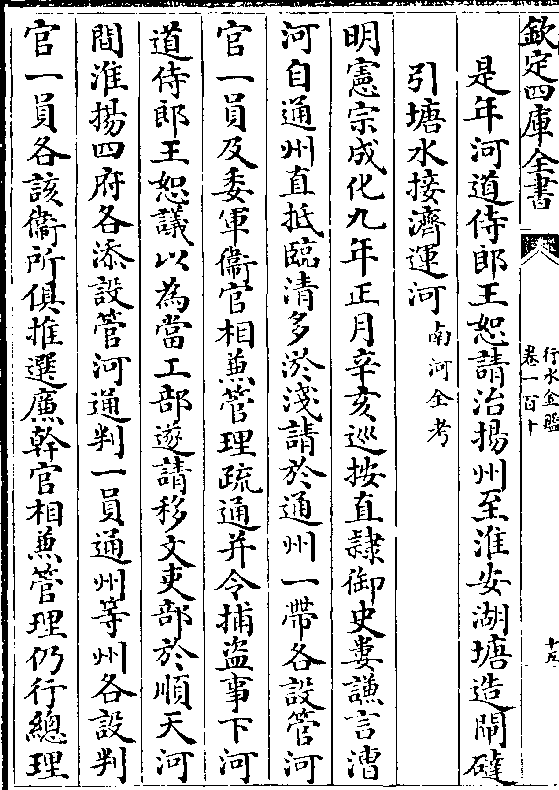 欽定四庫全書
行水金鑑
卷一百十
十五
是年河道侍郎王恕請治揚州至淮安湖塘造閘䃮
引塘水接濟運河南河全考
明憲宗成化九年正月辛亥巡按直隷御史婁謙言漕
河自通州直抵臨清多淤淺請於通州一帶各設管河
官一員及委軍衞官相兼管理疏通并令捕盜事下河
道侍郎王恕議以為當工部遂請移文吏部於順天河
間淮揚四府各添設管河通判一員通州等州各設判
官一員各該衞所俱推選廉幹官相兼管理仍行總理